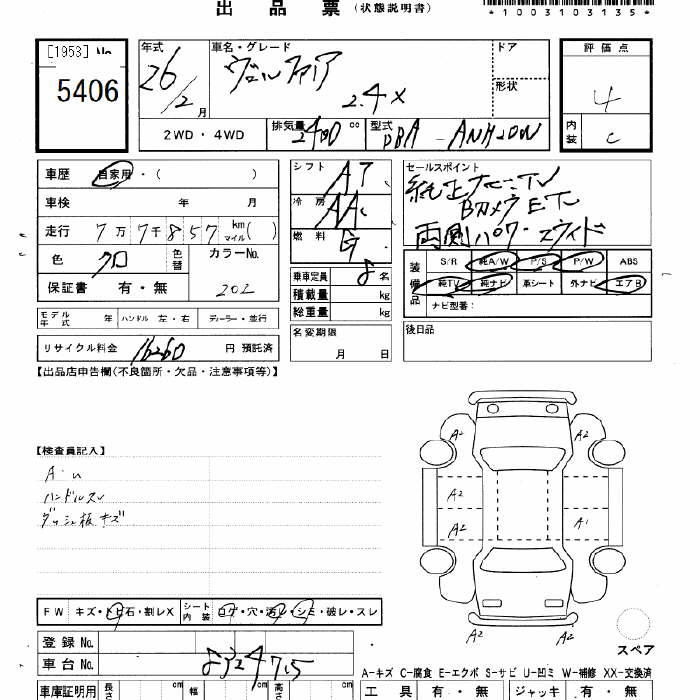 出品票 (状態説明書)
*1003103135*
[1953] No.
5406
年式 26/2月
車名・グレード ヴェルファイア 2.4X
ドア
形状
評価点 4
内装 C
2WD・4WD 排気量 2400 cc 型式 DBA-ANH20W
車歴 自家用・( )
車検 年 月
走行 7万7千857 km マイル( )
色 クロ 色替 カラーNo. 202
保証書 有・無
モデル年式 年 ハンドル 左・右 ディーラー・並行
リサイクル料金 16260 円 預託済
シフト AT
冷房 AAC
燃料 G
乗車定員 8 名
積載量 kg
総重量 kg
名変期限 月 日
セールスポイント
純正ナビ・TV
Bカメラ ETC
両側パワースライド
装備品 S/R 純A/W P/S P/W ABS
純TV 純ナビ 革シート 外ナビ エアB
ナビ型番:
後日品
【出品店申告欄(不良箇所・欠品・注意事項等)】
【検査員記入】
A・U
ハンドルスレ
ダッシュ板キズ
A2 A2
A2
A2 A1
A2 A2
スペア
FW キズ・トビ石・割レX シート内装 コゲ・穴・汚レ・シミ・破レ・スレ
登録 No.
車台 No. 8324715
A-キズ C-腐食 E-エクボ S-サビ U-凹ミ W-補修 XX-交換済
車庫証明用 長さ cm 幅 cm 高さ cm 工具 有・無 ジャッキ 有・無